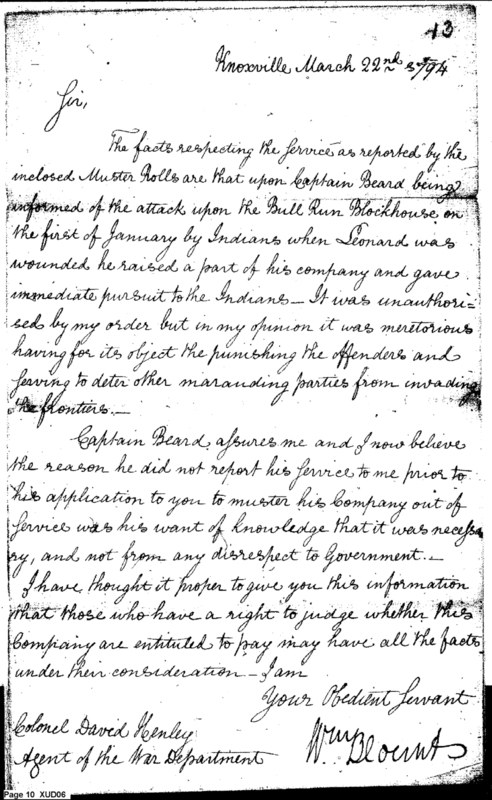 13
Knoxville March 22nd 1794
Sir,
The facts respecting the Service as reported by the
inclosed Muster Rolls are that upon Captain Beard being
informed of the attack upon the Bull Run Blockhouse on
the first of January by Indians when Leonard was
wounded he raised a part of his company and gave
immediate pursuit to the Indians — It was unauthori=
sed by my order but in my opinion it was meretorious
having for its object the punishing the offenders and
serving to deter other marauding parties from invading
the frontiers. —
Captain Beard, assures me and I now believe
the reason he did not report his Service to me prior to
his application to you to muster his Company out of
Service was his want of knowledge that it was necessa
ry, and not from any disrespect to Government. —
I have, thought it proper to give you this information
that those who have a right to judge whether this
Company are entituled to pay may have all the facts
under their consideration — I am
Your Obedient Servant
Wm Blount
Colonel David Henley
Agent of the War Department
Page 10 XUD06